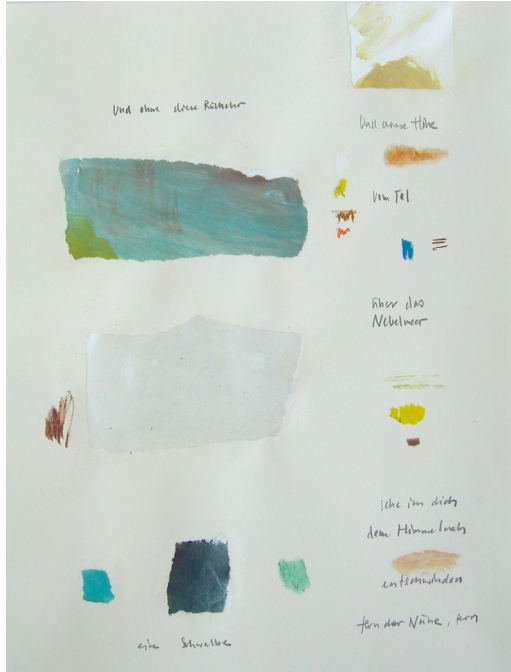 Und ohne diese Rückkehr
Und deine Höhe
vom Tal
über das
Nebelmeer
sehe ich dich
dem Himmel nah
entschwinden
fern der Nähe, fern
eine Schwalbe